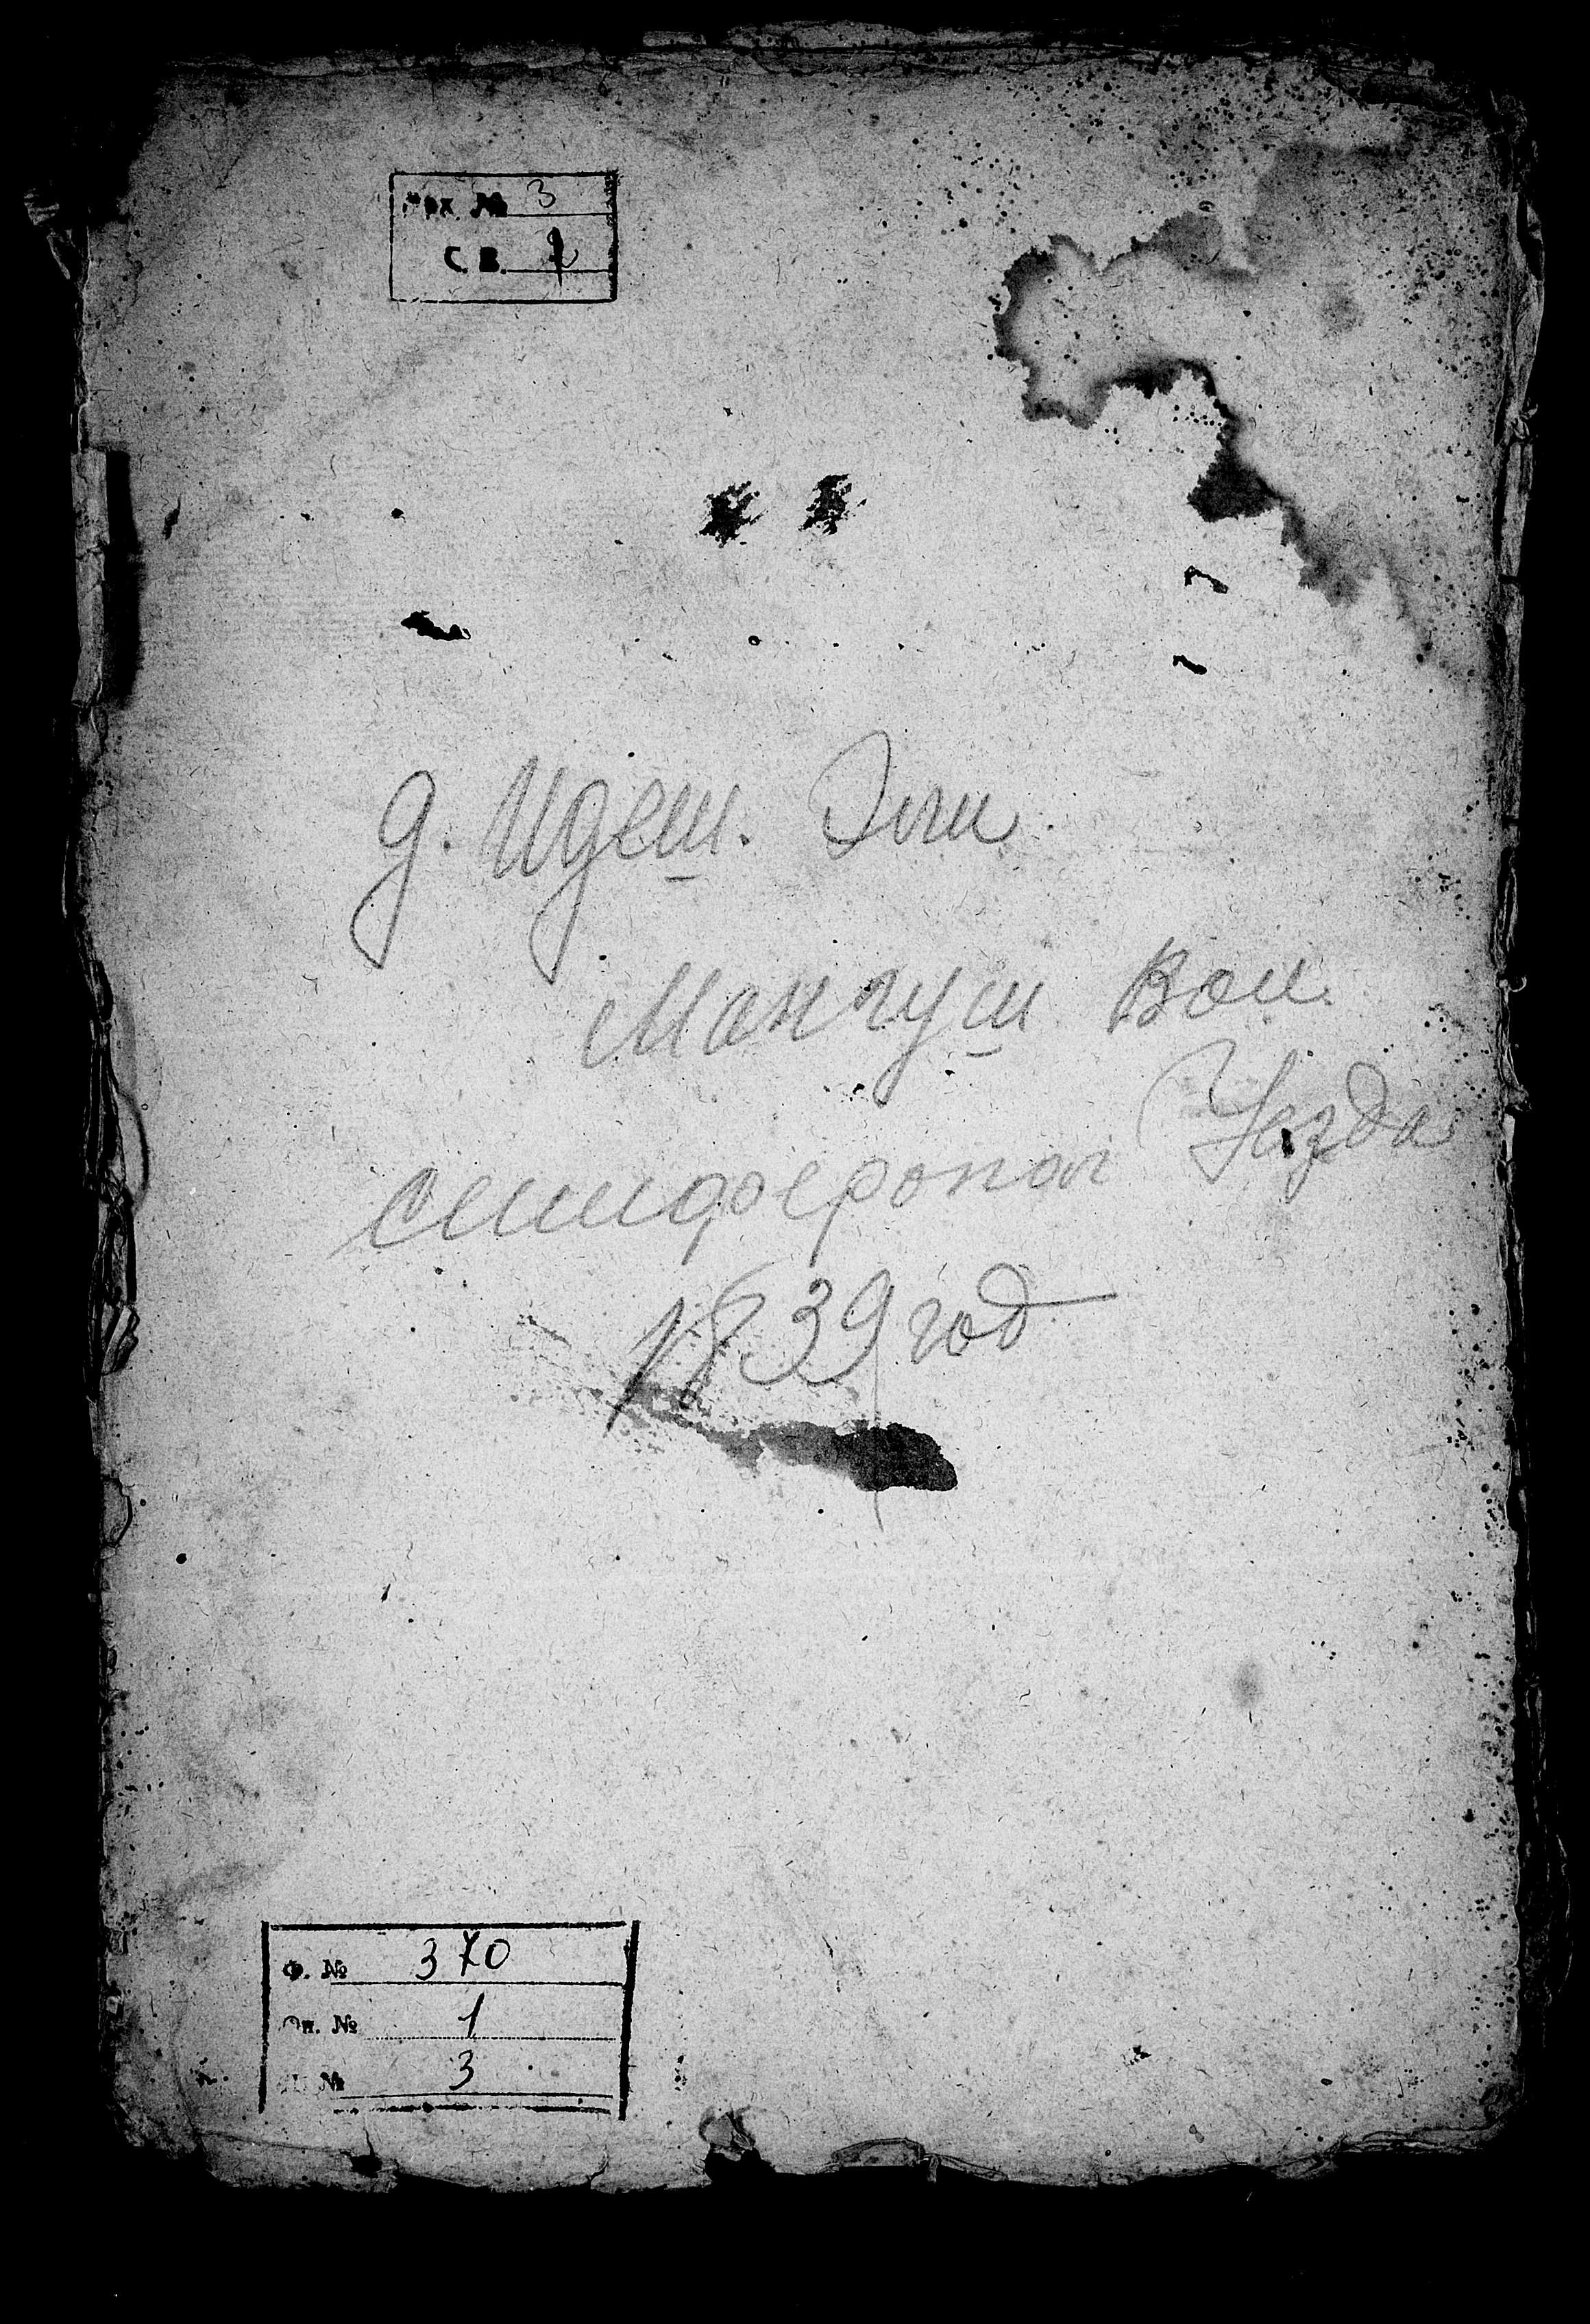 Арх. № 3
С. В. 2
д. Идеш. Эли
Мангуш Вол.
Уезда
симферопол
1839 год
Ф. № 370
Оп. № 1
Д. № 3